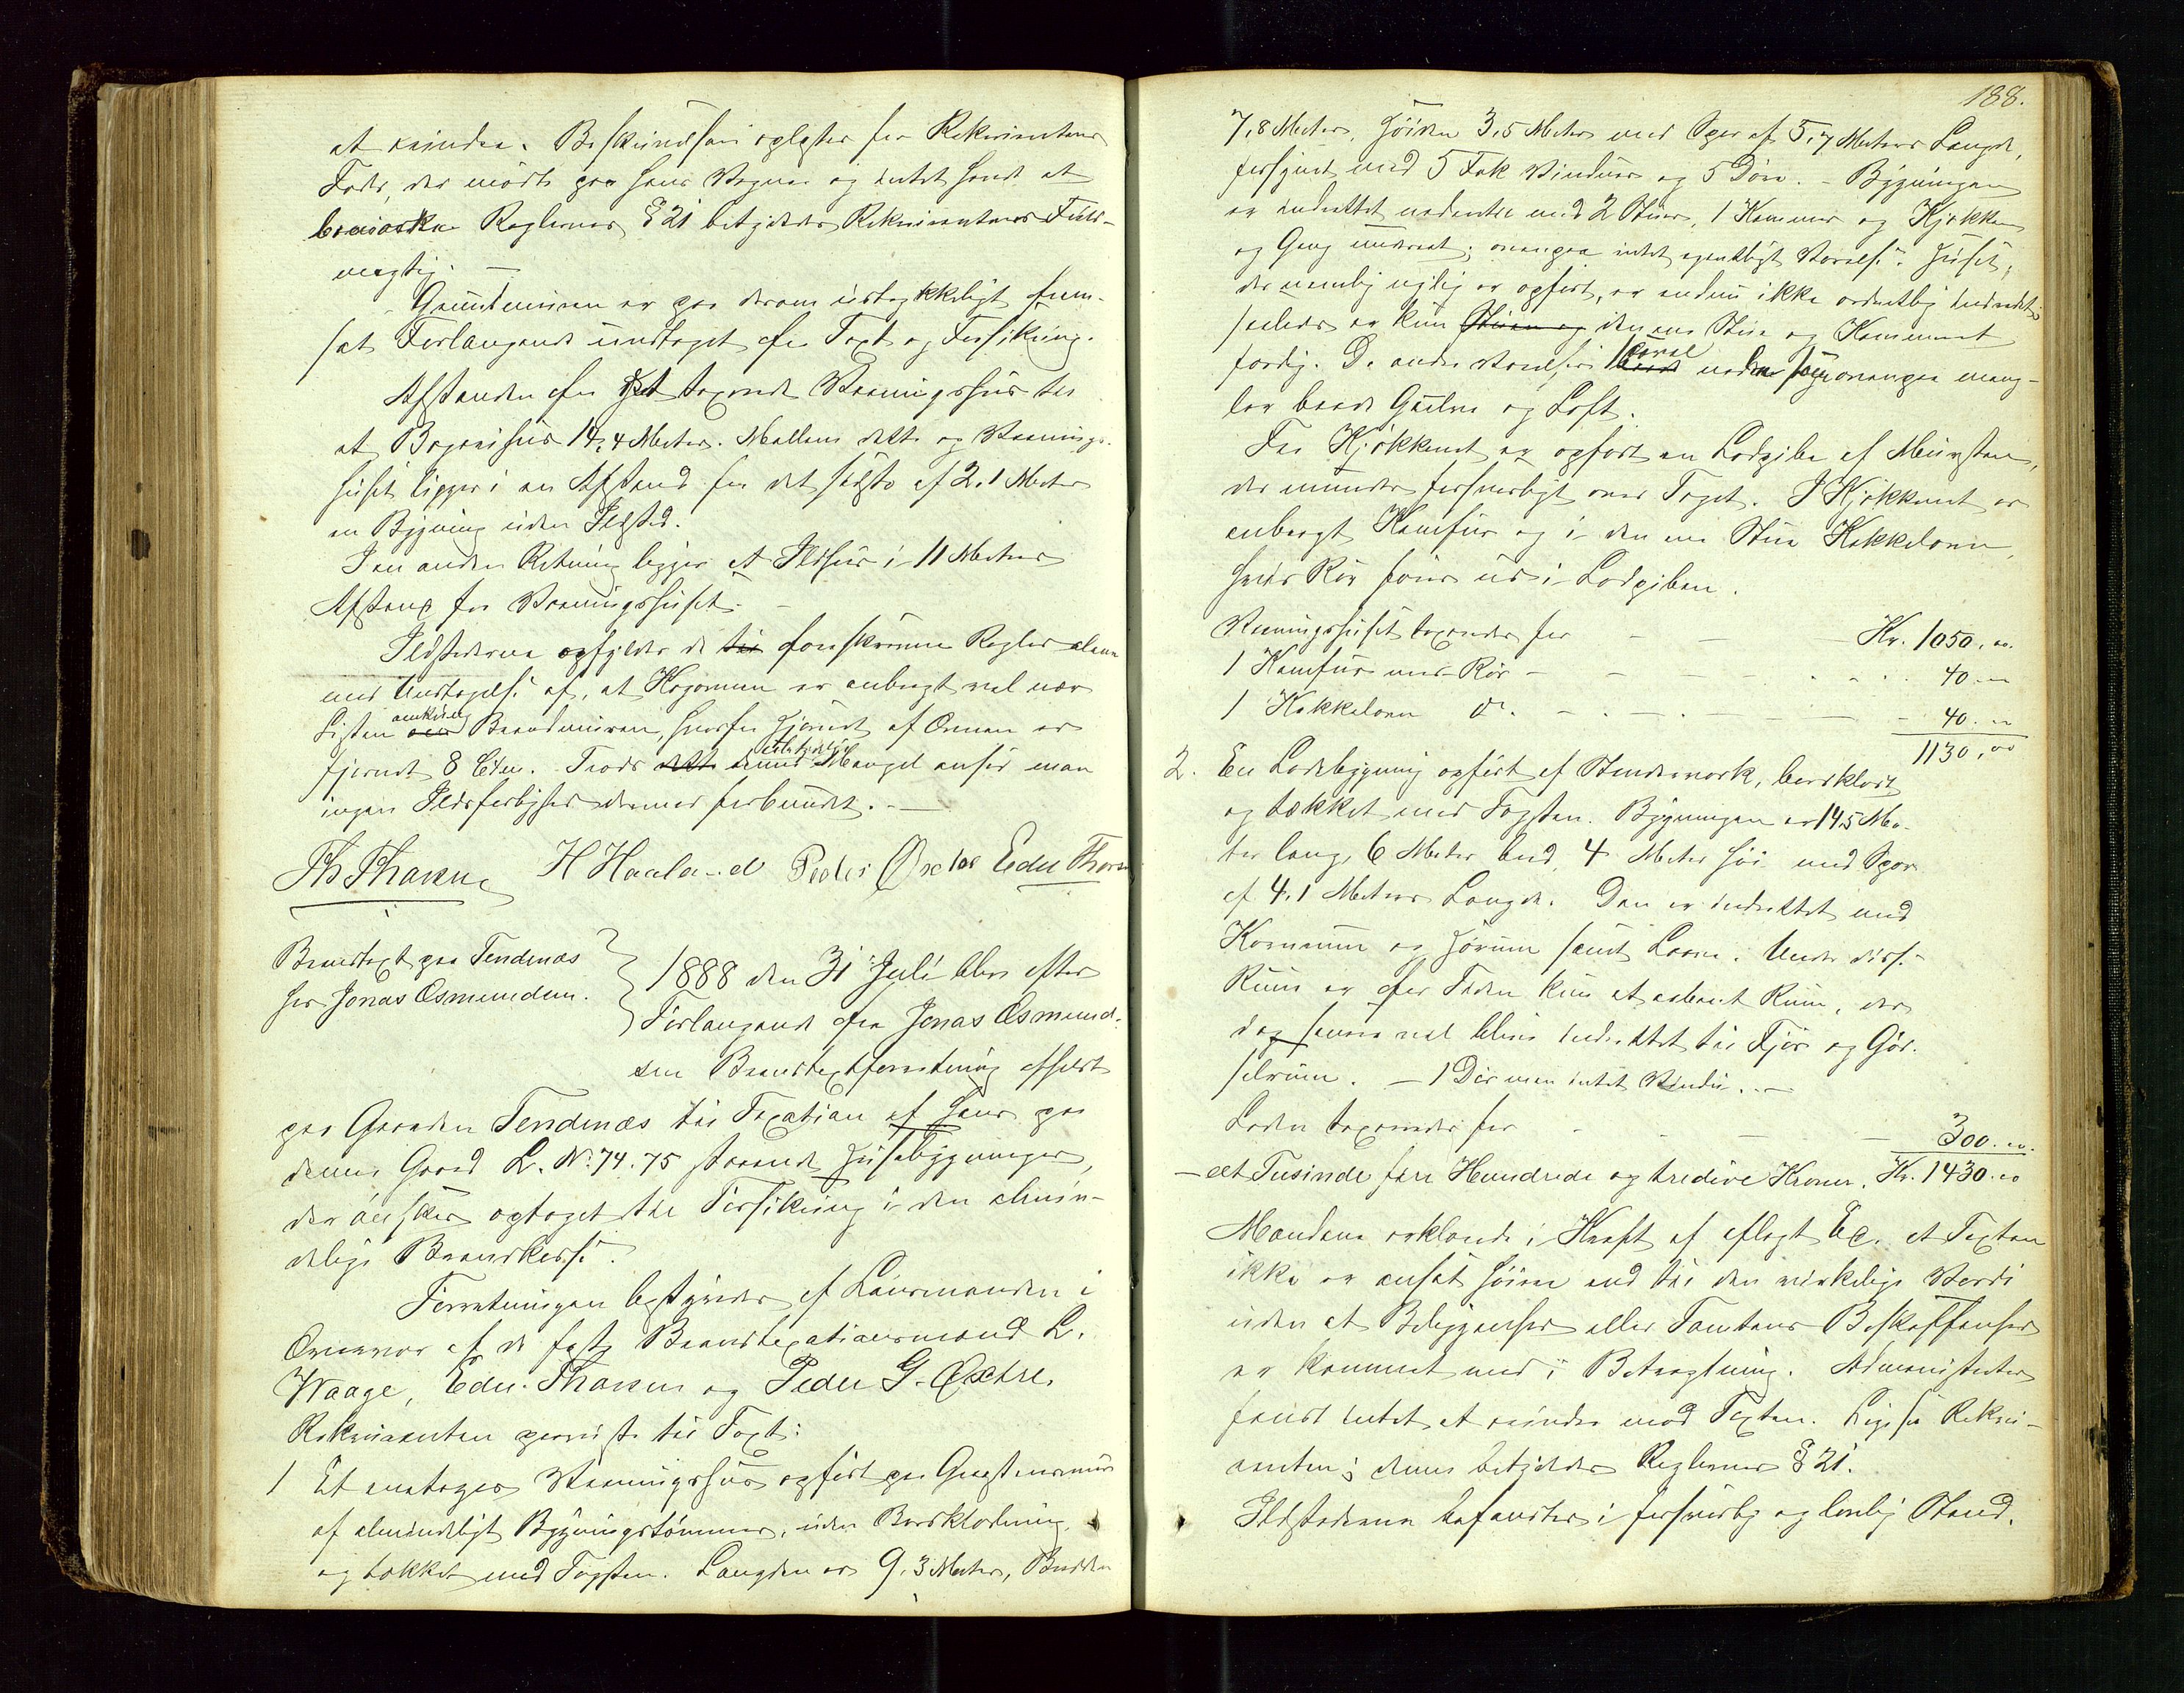 at erindre. Beskrivelsen oplæstes for Rekvirentens
Fader, der mødte paa hans Vegne og intet havde at
bemærke. Reglernes § 21 betydedes Rekvirentens Fuld-
mægtig. —
Grundmuren er paa derom udtrykkeligt frem-
sat Forlangende undtaget fra Taxt og Forsikring.
Afstanden fra det taxerede Vaaningshus til
et Bryggerhus 14,4 Meter. Mellem dette og Vaanings-
huset ligger i en Afstand fra det sidste af 2,1 Meter
en Bygning uden Ildsted.
I en anden Retning ligger et Ildhus i 11 Meters
Afstand fra Vaaningshuset. —
Ildstederne opfylder de til foreskrevne Regler alene
med Undtagelse af, at Kogovnen er anbragt vel nær
Listen omkring Brandmuren, hvorfra Hjørnet af Ovnen er
fjernet 8 Ctm. Trods dette denne Mangel anser man
ingen Ildsfarlighed dermed forbundet. —
Th Thorsen H Haaland Peder Øxtre Edv Thorsen
Brandtaxt paa Tendenæs
for Jonas Osmundsen.
1888 den 31 Juli blev efter
Forlangende fra Jonas Osmund-
sen Brandtaxtforretning afholdt
paa Gaarden Tendenæs til Taxation af hans paa
denne Gaard L. No. 74. 75 staaende Husebygninger,
der ønskes optaget til Forsikring i den almin-
delige Brandkasse.
Forretningen bestyredes af Lensmanden i
Overvær af de faste Brandtaxationsmænd L.
Waage, Edv. Thorsen og Peder G. Øxtre.
Rekvirenten paaviste til Taxt:
1 Et enetages Vaaningshus opført paa Graastensmur
af almindeligt Bygningstømmer, uden Bordklædning,
og tækket med Tagsten. Længden er 9,3 Meter, Bredden
188.
7,8 Meter, Høiden 3,5 Meter med Sper af 5,7 Meters Længde,
forsynet med 5 Fak Vinduer og 5 Døre. — Bygningen
er indrettet nedentil med 2 Stuer, 1 Kammer og Kjøkken
og Gang underst; ovenpaa intet egentligt Værelse. Huset,
der nemlig nylig er opført, er endnu ikke ordentlig indredet;
saaledes er kun Stuen og den ene Stue og Kammeret
færdig. De andre Værelser saavel nede som ovenpaa mang-
ler baade Gulve og Loft.
Fra Kjøkkenet er opført en Lodpibe af Mursten,
der munder forsvarligt over Taget. I Kjøkkenet er
anbragt Komfur og i den ene Stue Kakkelovn,
hvis Rør føres ud i Lodpiben.
Vaaningshuset taxeredes for — — Kr. 1050, 00.
1 Komfur med Rør — — — 40. 00
1 Kakkelovn do. — — — 40. 00
1130,00
2. En Ladebygning opført af Stenderværk, bordklædt
og tækket med Tagsten. Bygningen er 14,5 Me-
ter lang, 6 Meter bred, 4 Meter høi med Sper
af 4,1 Meters Længde. Den er indrettet med
Kornrum og Hørum samt Laave. Under disse
Rum er for Tiden kun et aabent Rum, der
dog senere vel bliver indrettet til Fjøs og Gød-
selrum. — 1 Dør men intet Vindu. —
Laden taxeredes for — — — 300. 00.
— et Tusinde fire Hundrede og tredive Kroner. Kr. 1430.00
Mændene erklærede i Kraft af aflagt Ed, at Taxten
ikke er ansat høiere end til den virkelige Værdi
uden at Beliggenhed eller Tomtens Beskaffenhed
er kommet med i Betragtning. Administrator
fandt intet at erindre mod Taxten. Ligesaa Rekvi-
renten; denne betydedes Reglernes § 21.
Ildstederne befandtes i forsvarlig og lovlig Stand.